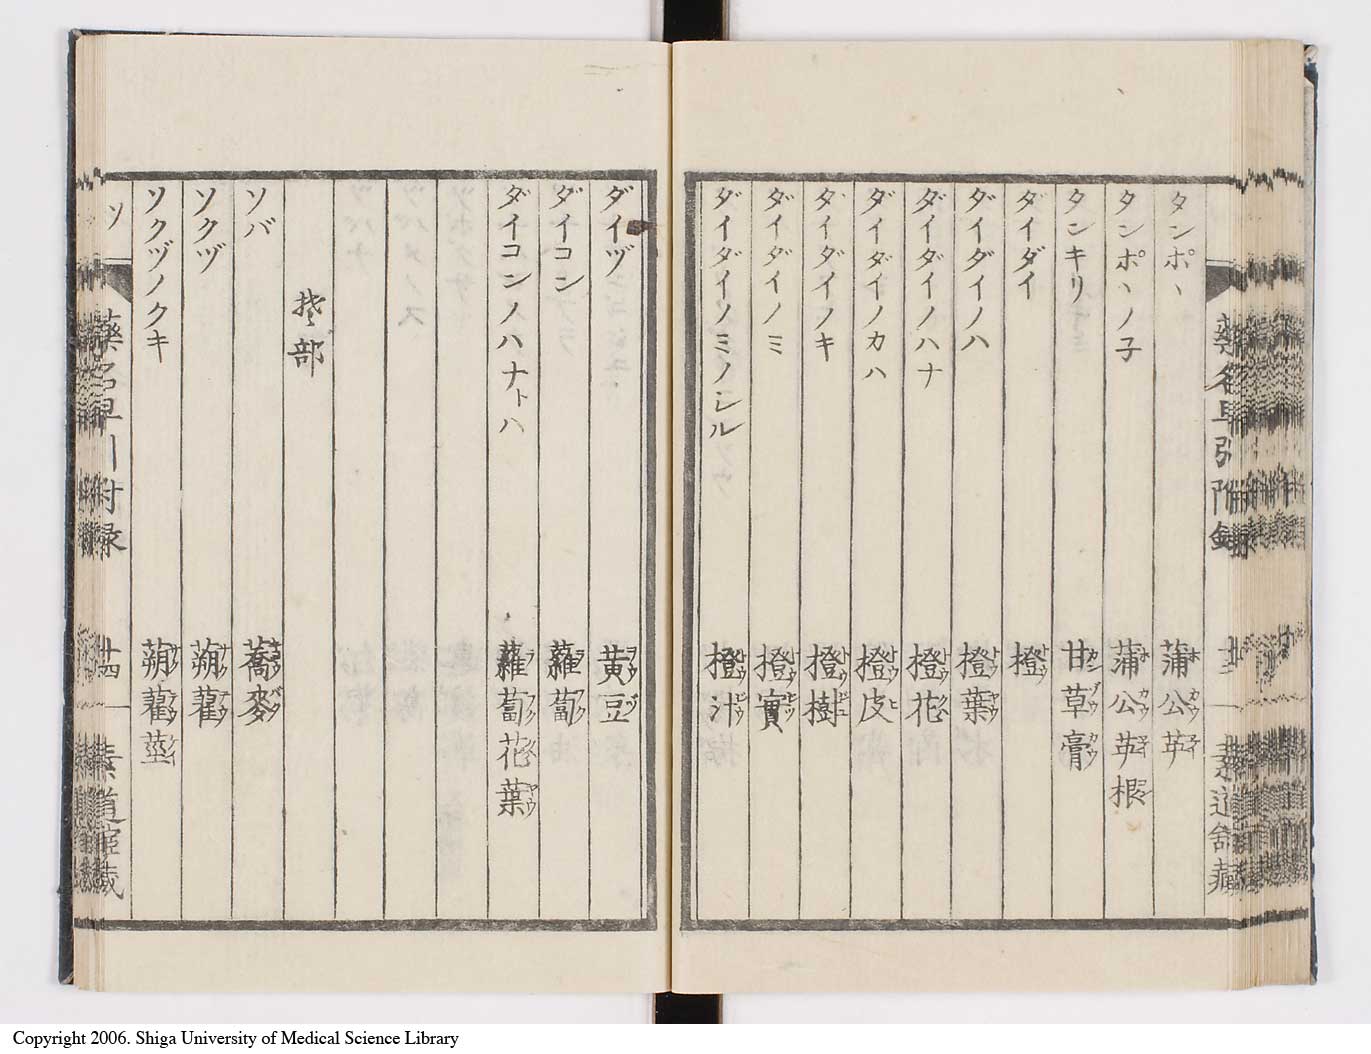 藥名早引附録
タンポヽ 蒲公英
タンポヽノ子 蒲公英根
タンキリ 甘草膏
ダイダイ 橙
ダイダイノハ 橙葉
ダイダイノハナ 橙花
ダイダイノカハ 橙皮
ダイダイノキ 橙樹
ダイダイノミ 橙實
ダイダイノミノシル 橙汁
ダイヅ 黄豆
ダイコン 蘿蔔
ダイコンノハナトハ 蘿蔔花葉
部
ソバ 蕎麥
ソクヅ 蒴藋
ソクヅノクキ 蒴藋莖
ソ 藥名早引附録 廿四
Copyright 2006. Shiga University of Medical Science Library